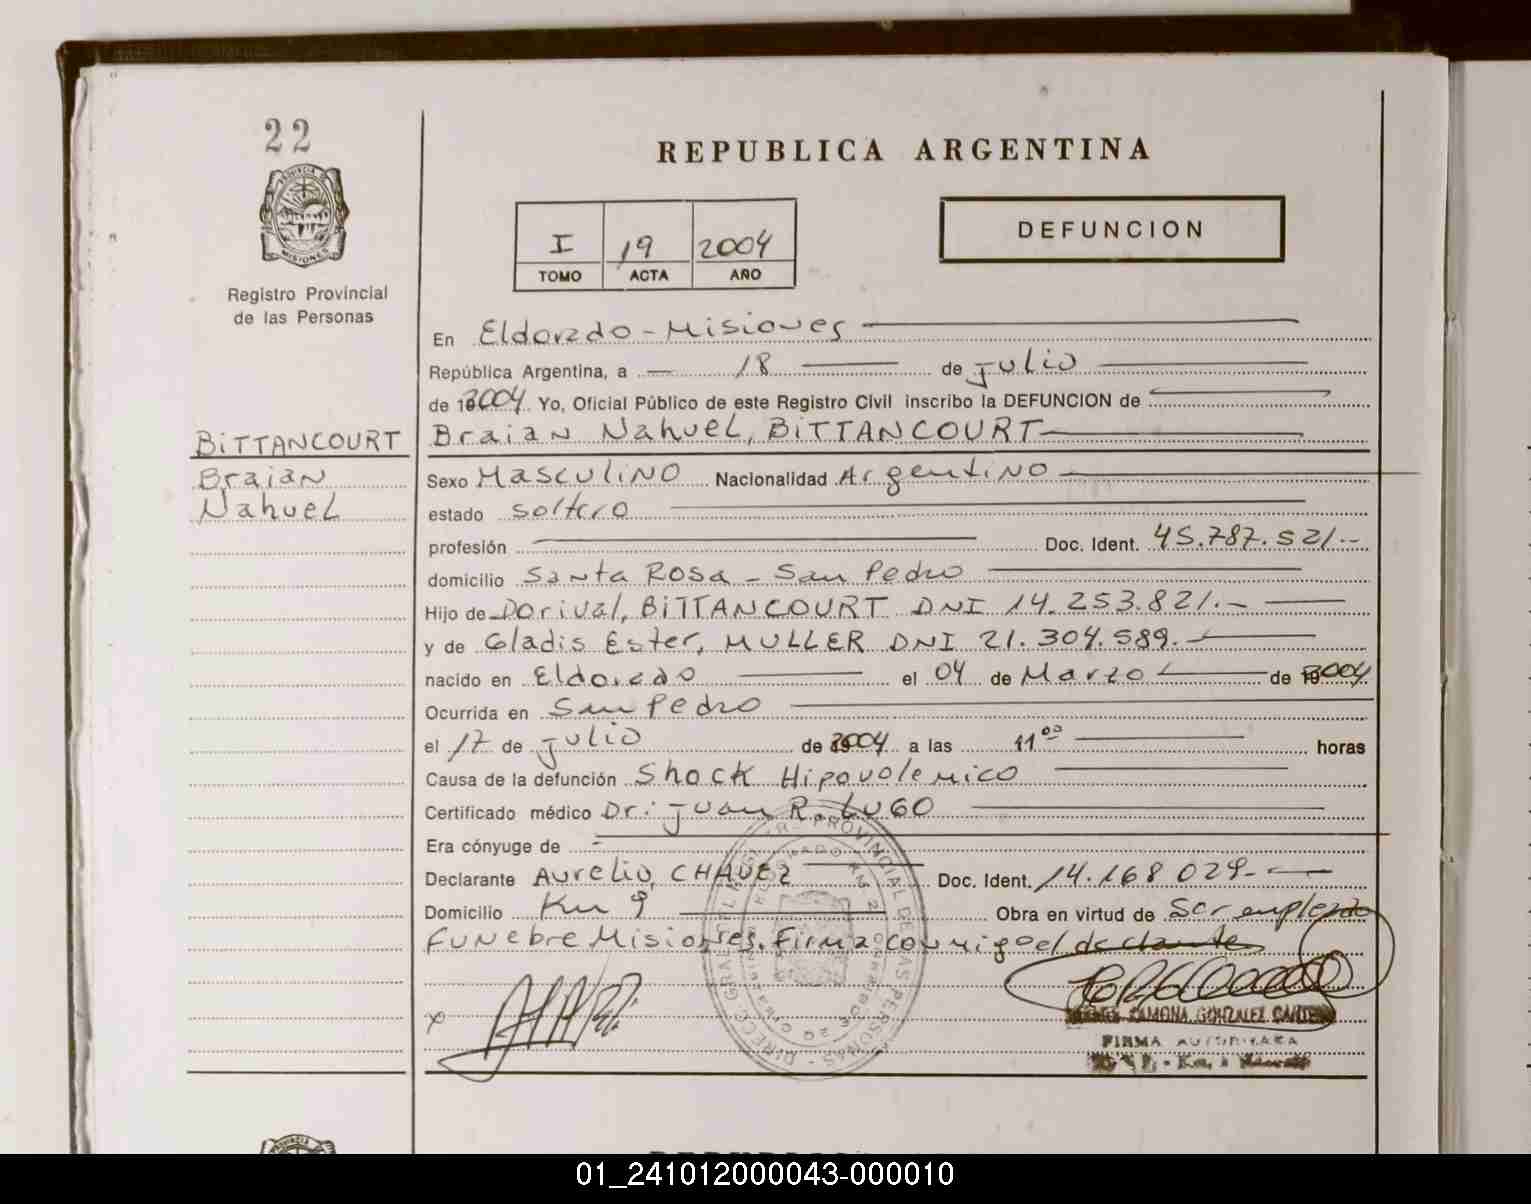 22
PROVINCIA D
MISIONES
Registro Provincial
de las Personas
REPUBLICA ARGENTINA
I 19 2004
TOMO ACTA AÑO
DEFUNCION
En Eldorado - Misiones
República Argentina, a 18 de julio
de 2004 Yo, Oficial Público de este Registro Civil inscribo la DEFUNCION de
BITTANCOURT
Braian
Nahuel
Braian Nahuel, BITTANCOURT
Sexo Masculino Nacionalidad Argentino
estado soltero
profesión Doc. Ident. 45.787.521.-
domicilio Santa Rosa - San Pedro
Hijo de Dorival, BITTANCOURT DNI 14.253.821.-
y de Gladis Ester, MULLER DNI 21.304.589.-
nacido en Eldorado el 04 de Marzo de 2004
Ocurrida en San Pedro
el 17 de julio de 2004 a las 11 00 horas
Causa de la defunción Shock Hipovolemico
Certificado médico Dr: Juan R. LUGO
Era cónyuge de -
Declarante Aurelio, CHAVEZ Doc. Ident. 14.168.029.-
Domicilio Km 9 Obra en virtud de ser empleado
Funebre Misiones. Firma conmigo el declarante
RAMONA GONZALEZ
FIRMA AUTORIZADA
01_241012000043-000010